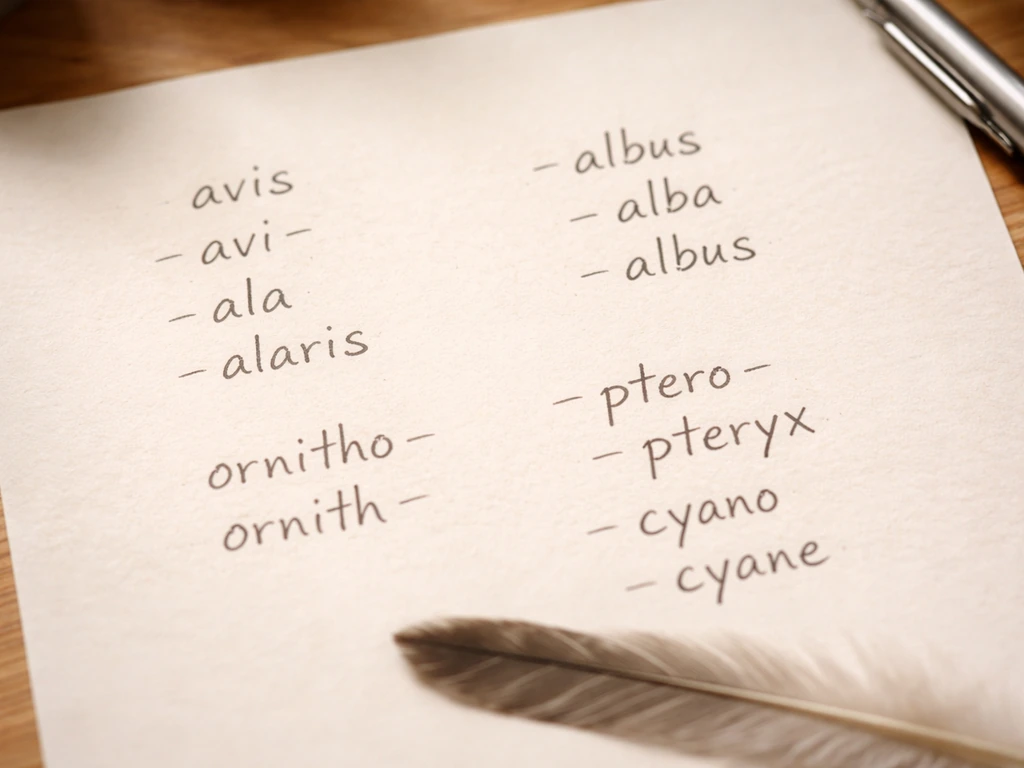 avis
- avi -
- ala
- alaris
ornitho -
ornith -
- albus
- alba
- albus
- ptero -
- pteryx
- cyano
- cyane